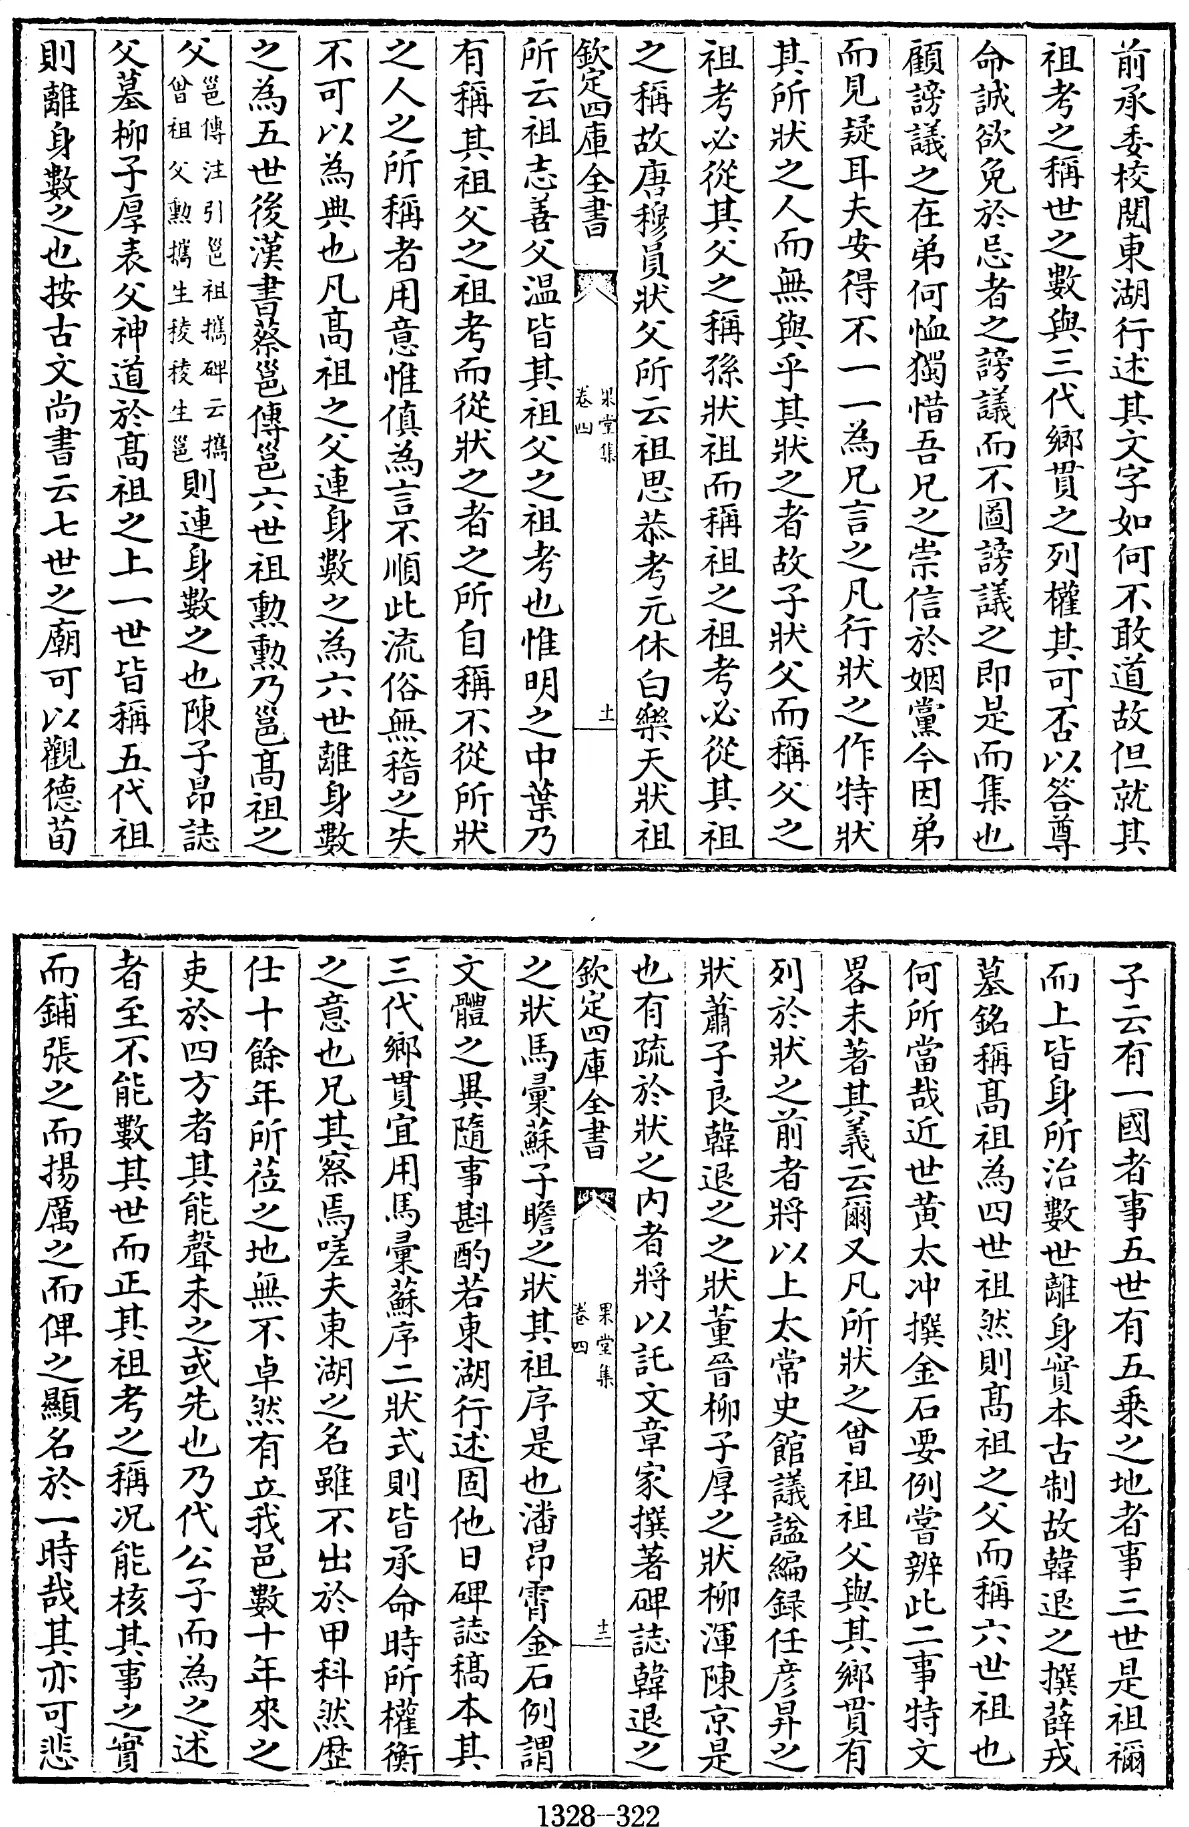 前承委校閱東湖行述其文字如何不敢道故但就其
祖考之稱世之數與三代鄉貫之列權其可否以答尊
命誠欲免於忌者之謗議而不圖謗議之即是而集也
顧謗議之在弟何恤獨惜吾兄之崇信於姻黨今因弟
而見疑耳夫安得不一一為兄言之凡行狀之作特狀
其所狀之人而無與乎其狀之者故子狀父而稱父之
祖考必從其父之稱孫狀祖而稱祖之祖考必從其祖
之稱故唐穆員狀父所云祖思恭考元休白樂天狀祖
欽定四庫全書
果堂集
卷四
十一
所云祖志善父温皆其祖父之祖考也惟明之中葉乃
有稱其祖父之祖考而從狀之者之所自稱不從所狀
之人之所稱者用意惟傎為言不順此流俗無稽之失
不可以為典也凡高祖之父連身數之為六世離身數
之為五世後漢書蔡邕傳邕六世祖勲勲乃邕高祖之
父邕傳注引邕祖攜碑云攜曾祖父勲攜生稜稜生邕則連身數之也陳子昂誌
父墓柳子厚表父神道於高祖之上一世皆稱五代祖
則離身數之也按古文尚書云七世之廟可以觀德荀
子云有一國者事五世有五乗之地者事三世是祖禰
而上皆身所治數世離身實本古制故韓退之撰薛戎
墓銘稱高祖為四世祖然則高祖之父而稱六世祖也
何所當哉近世黄太冲撰金石要例嘗辨此二事特文
畧未著其義云爾又凡所狀之曾祖祖父與其鄉貫有
列於狀之前者將以上太常史館議諡編録任彦昇之
狀蕭子良韓退之之狀董晉柳子厚之狀柳渾陳京是
也有疏於狀之内者將以託文章家撰著碑誌韓退之
欽定四庫全書
果堂集
卷四
十二
之狀馬彚蘇子瞻之狀其祖序是也潘昂霄金石例謂
文體之異隨事斟酌若東湖行述固他日碑誌稿本其
三代鄉貫宜用馬彚蘇序二狀式則皆承命時所權衡
之意也兄其察焉嗟夫東湖之名雖不出於甲科然歴
仕十餘年所莅之地無不卓然有立我邑數十年來之
吏於四方者其能聲未之或先也乃代公子而為之述
者至不能數其世而正其祖考之稱况能核其事之實
而鋪張之而揚厲之而俾之顯名於一時哉其亦可悲
1328-322